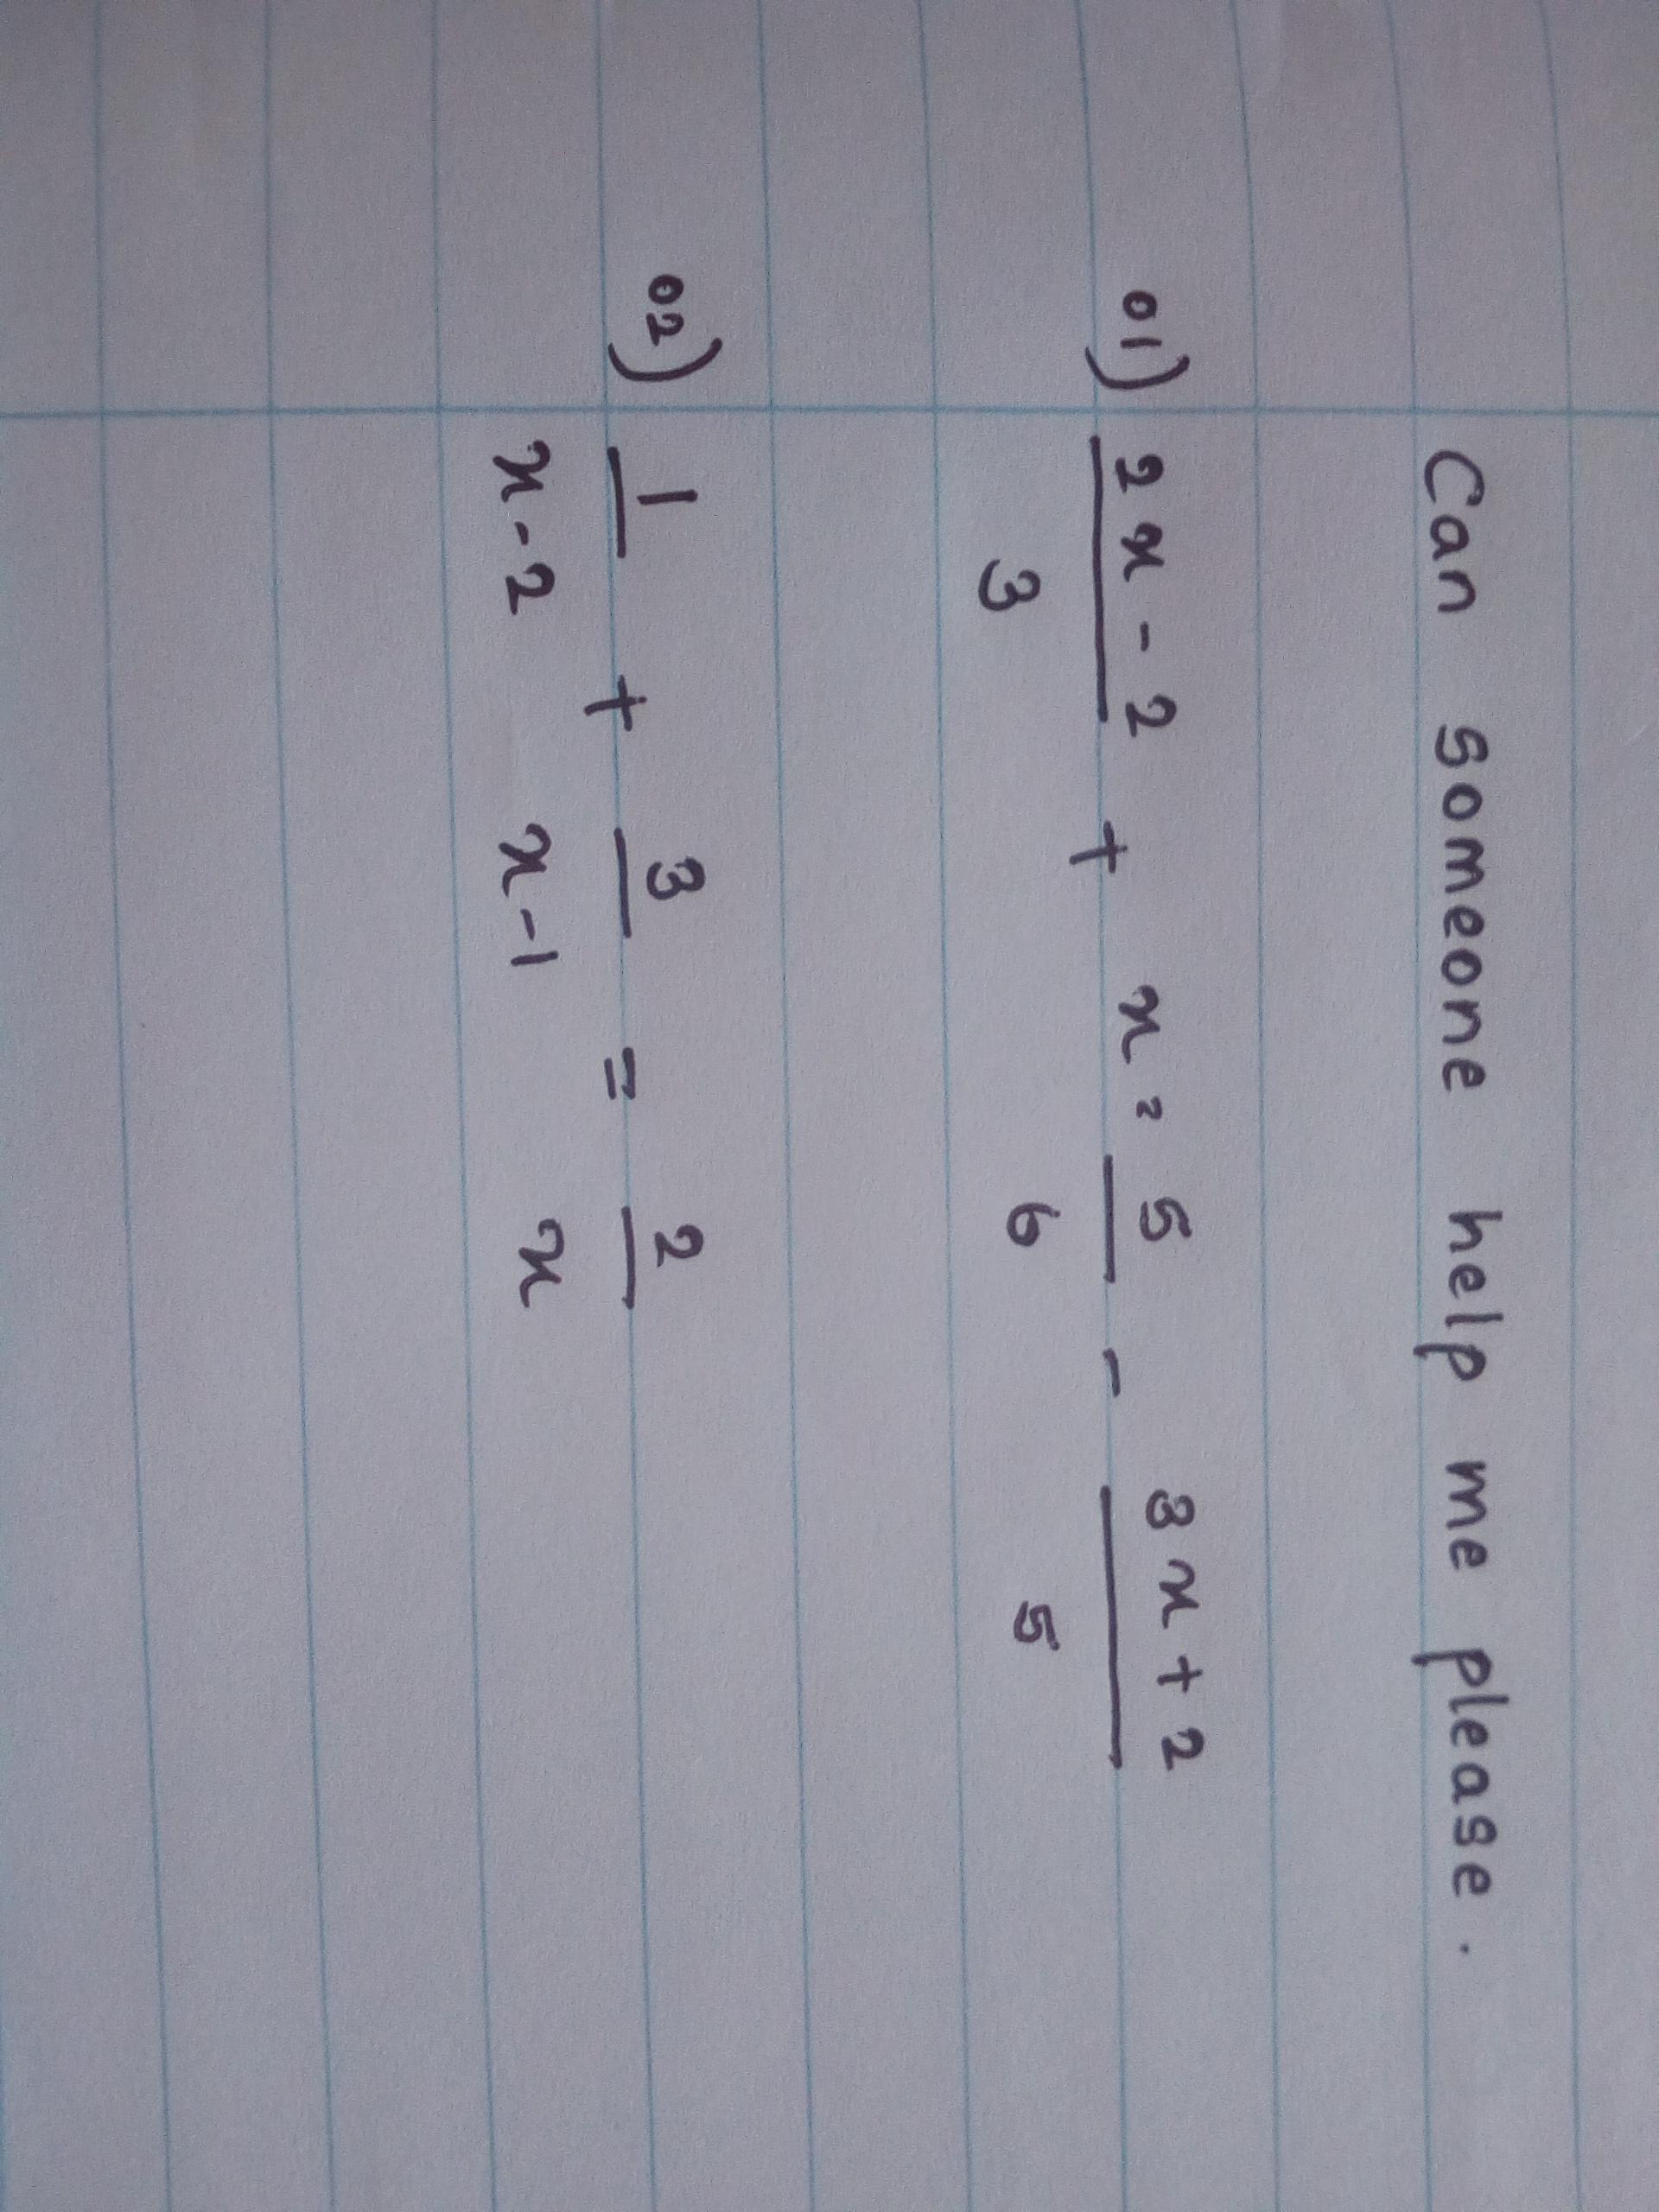 Can someone help me please.
01) (2x - 2)/3 + x = 5/6 - (3x + 2)/5
02) 1/(x - 2) + 3/(x - 1) = 2/x